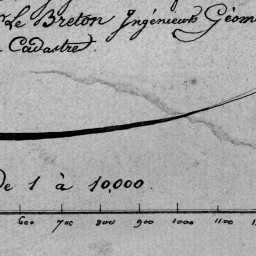 Le Breton Ingénieurs Géom
Cadastre.
de 1 à 10,000.
600 700 800 900 1000 1100